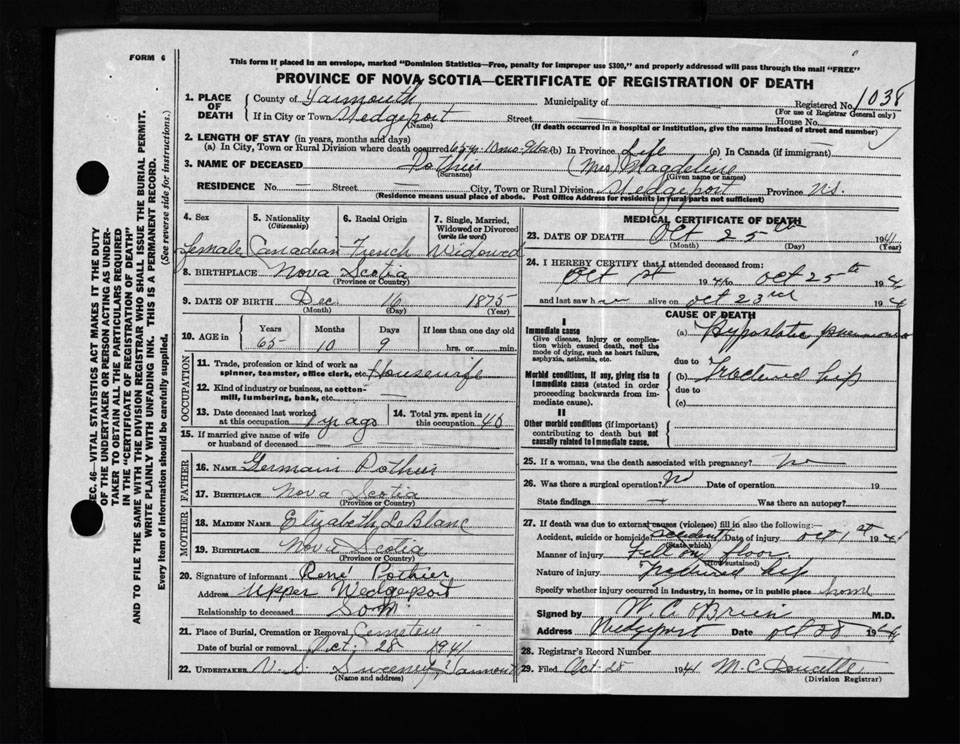 FORM 6
This form if placed in an envelope, marked "Dominion Statistics—Free, penalty for improper use $300," and properly addressed will pass through the mail "FREE"
PROVINCE OF NOVA SCOTIA—CERTIFICATE OF REGISTRATION OF DEATH
SEC. 46—VITAL STATISTICS ACT MAKES IT THE DUTY
OF THE UNDERTAKER OR PERSON ACTING AS UNDER-
TAKER TO OBTAIN ALL THE PARTICULARS REQUIRED
IN THE "CERTIFICATE OF REGISTRATION OF DEATH"
AND TO FILE THE SAME WITH THE DIVISION REGISTRAR WHO SHALL ISSUE THE BURIAL PERMIT.
WRITE PLAINLY WITH UNFADING INK. THIS IS A PERMANENT RECORD.
Every item of information should be carefully supplied. (See reverse side for instructions.)
1. PLACE OF DEATH
County of Yarmouth Municipality of Registered No. 1038
(For use of Registrar General only)
If in City or Town Wedgeport (Name) Street — House No.
(If death occurred in a hospital or institution, give the name instead of street and number)
2. LENGTH OF STAY (in years, months and days)
(a) In City, Town or Rural Division where death occurred 65y-10mos-9da (b) In Province Life (c) In Canada (if immigrant)
3. NAME OF DECEASED Pothier (Surname) (Mrs) Magdeline (Given name or names)
RESIDENCE No. — Street — City, Town or Rural Division Wedgeport Province N.S.
(Residence means usual place of abode. Post Office Address for residents in rural parts not sufficient)
4. Sex Female
5. Nationality (Citizenship) Canadian
6. Racial Origin French
7. Single, Married, Widowed or Divorced (write the word) Widowed
8. BIRTHPLACE Nova Scotia
(Province or Country)
9. DATE OF BIRTH Dec 16 1875
(Month) (Day) (Year)
10. AGE in Years 65 Months 10 Days 9 If less than one day old hrs. or min.
OCCUPATION
11. Trade, profession or kind of work as spinner, teamster, office clerk, etc. Housewife
12. Kind of industry or business, as cotton-mill, lumbering, bank, etc. —
13. Date deceased last worked at this occupation 1 yr ago
14. Total yrs. spent in this occupation 40
15. If married give name of wife or husband of deceased —
FATHER
16. NAME Germain Pothier
17. BIRTHPLACE Nova Scotia
(Province or Country)
MOTHER
18. MAIDEN NAME Elizabeth LeBlanc
19. BIRTHPLACE Nova Scotia
(Province or Country)
20. Signature of informant René Pothier
Address Upper Wedgeport
Relationship to deceased Son
21. Place of Burial, Cremation or Removal Cemetery
Date of burial or removal Oct. 28 1941
22. UNDERTAKER V. S. Sweeney, Yarmouth
(Name and address)
MEDICAL CERTIFICATE OF DEATH
23. DATE OF DEATH Oct 25th 1941
(Month) (Day) (Year)
24. I HEREBY CERTIFY that I attended deceased from:
Oct 1st 194 to Oct 25th 194
and last saw h alive on Oct 23rd 194
CAUSE OF DEATH
I
Immediate cause
Give disease, injury or complica-
tion which caused death, not the
mode of dying, such as heart failure,
asphyxia, asthenia, etc.
(a) Hypostatic pneumonia
due to
Morbid conditions, if any, giving rise to
immediate cause (stated in order
proceeding backwards from im-
mediate cause).
(b) Fractured hip
due to
(c)
II
Other morbid conditions (if important)
contributing to death but not
causally related to immediate cause.
25. If a woman, was the death associated with pregnancy? No
26. Was there a surgical operation? No Date of operation 19
State findings — Was there an autopsy?
27. If death was due to external causes (violence) fill in also the following:
Accident, suicide or homicide Accident (State which) Date of injury Oct 1st 1941
Manner of injury Fell on floor (How sustained)
Nature of injury Fractured hip
Specify whether injury occurred in industry, in home, or in public place home
Signed by W. C. O'Brien M.D.
Address Wedgeport Date Oct 28 194
28. Registrar's Record Number
29. Filed Oct. 28 1941 M. C. Doucette
(Division Registrar)